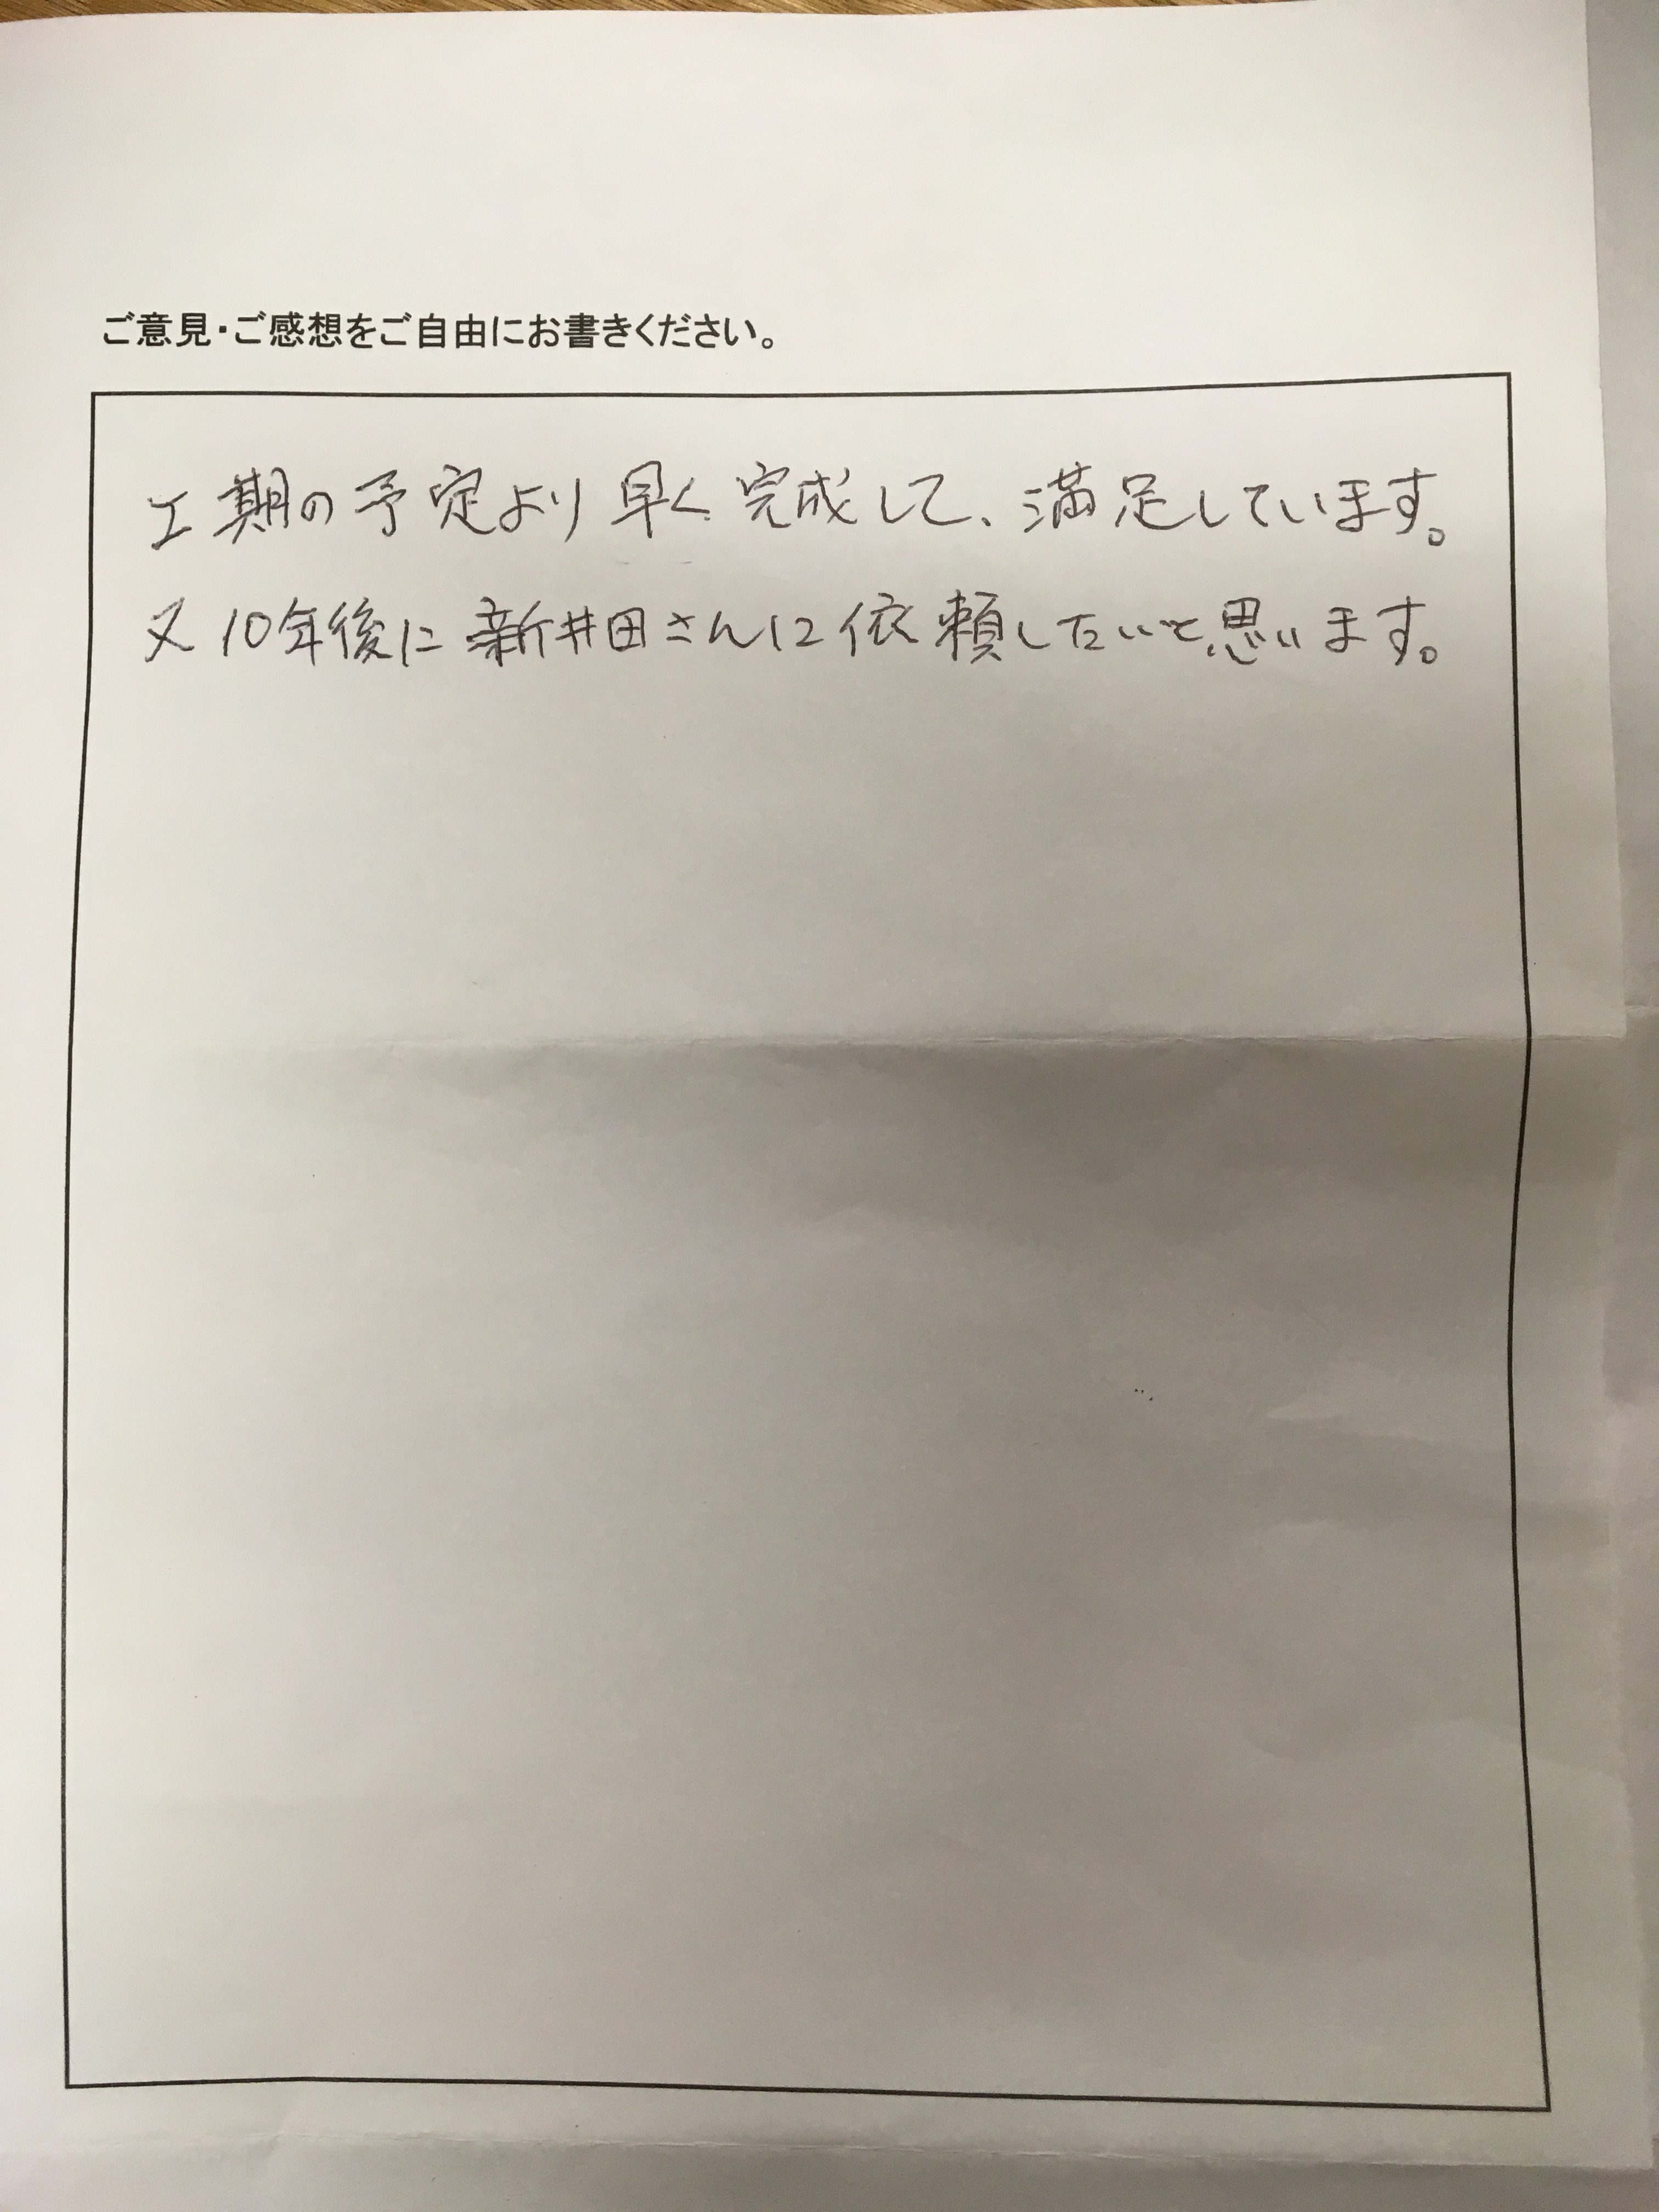 ご意見・ご感想をご自由にお書きください。
工期の予定より早く完成して、満足しています。
又10年後に新井田さんに依頼したいと思います。